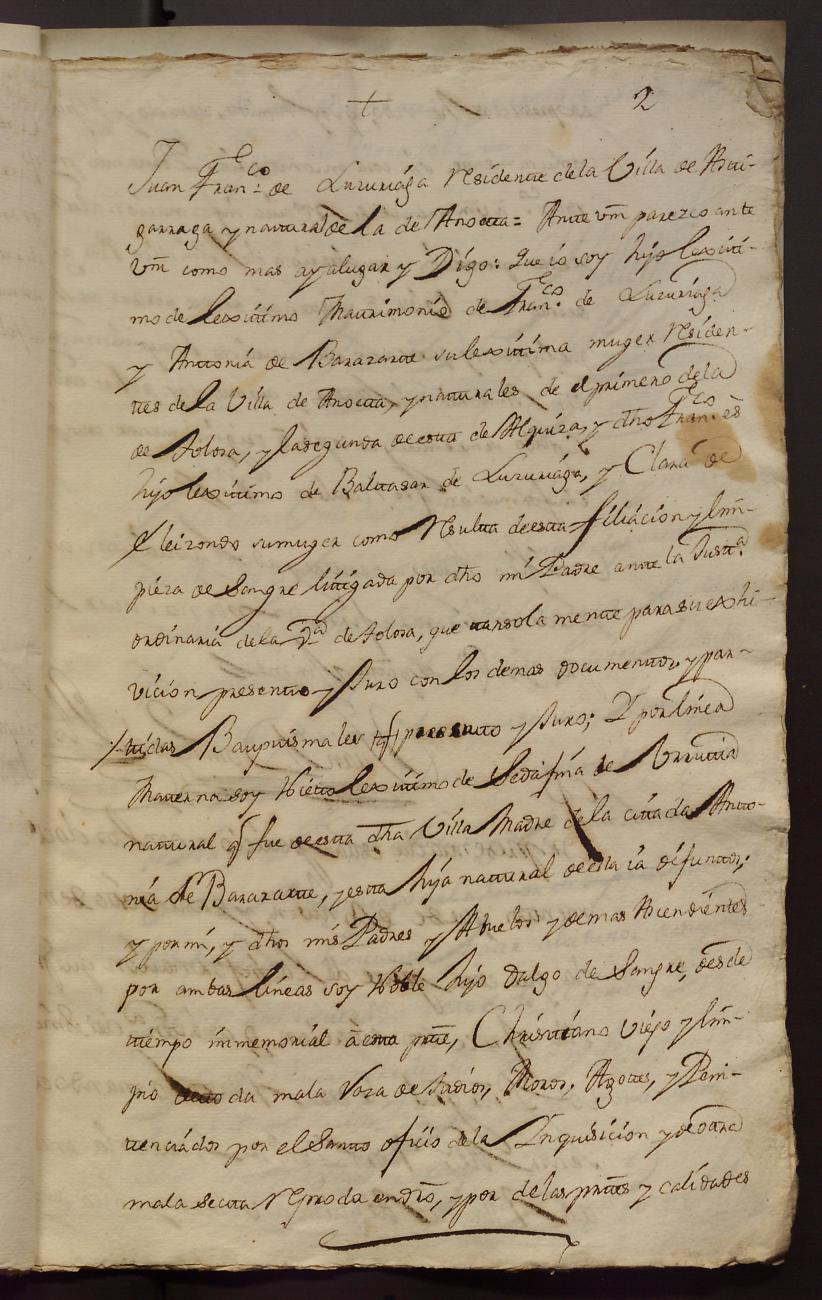 + 2
Juan Fran.co de Luzuriaga residente de la Villa de Asti-
garraga y natural de la de Anoeta = Ante vm parezco ante
vm como mas aya lugar y Digo: Que io soy hijo lexiti-
mo de lexitimo Matrimonio de Fran.co de Luzuriaga
y Antonia de Barazarte su lexitima muger residen-
tes de la Villa de Anoeta, y naturales de el primero de la
de Tolosa, y la segunda de esta de Alquiza, y dho Fran.co es
hijo lexitimo de Baltasar de Luzuriaga, y Clara de
Eleizondo su muger como resulta de esta filiacion y lim-
pieza de Sangre litigada por dho mi Padre ante la Justt.a
ordinaria de la Va de Tolosa, que tan sola mente para su exhi-
vicion presento y Juro con los demas documentos y par-
tidas Baptismales q presento y Juro; Y por linea
Materna soy Nieto lexitimo de Sedafina de Urrutia
natural q fue de esta dha Villa Madre de la citada Anto-
nia de Barazarte, y esta hija natural de ella ia difuntos;
y por mi, y dhos mis Padres y Abuelos y demas Ascendientes
por ambas lineas soy Noble hijo dalgo de Sangre, desde
tiempo inmemorial a esta prte, Christiano Viejo y lim-
pio de toda mala Raza de Judios, Moros, Agotes, y Peni-
tenciados por el Santo oficio de la Inquisicion y de otra
mala secta reprobada en dro, y por de las partes y calidades